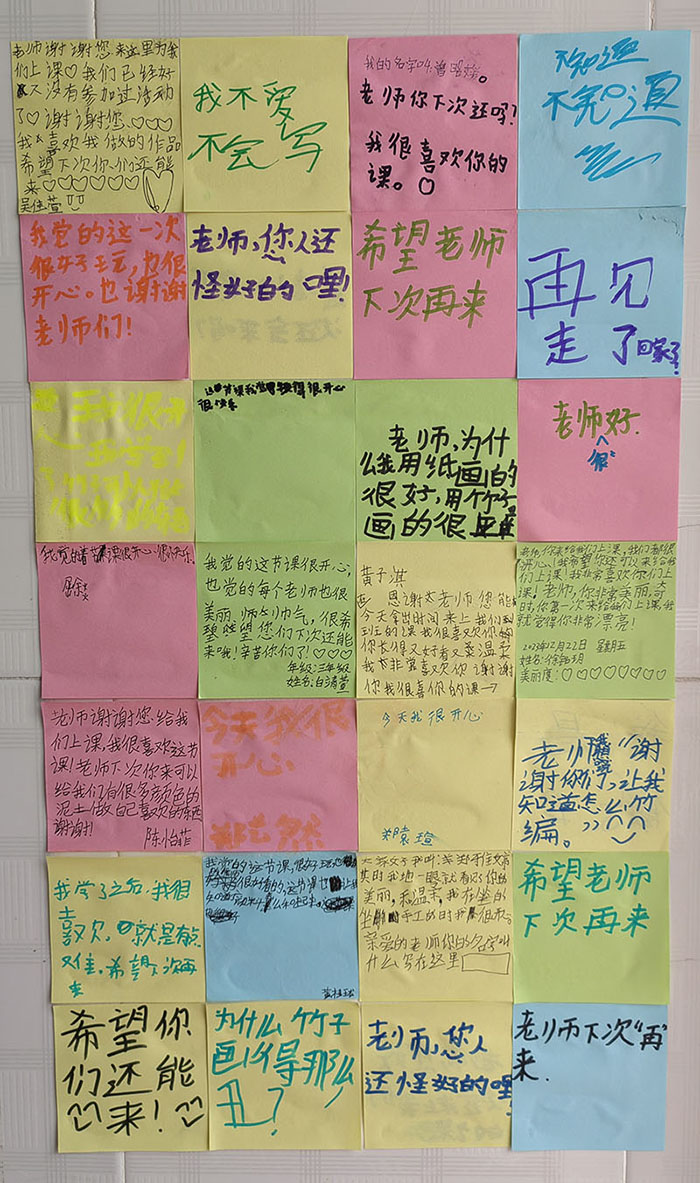 老师谢谢您来这里为我
们上课♡我们已经好
久没有参加过活动
了♡谢谢您♡♡♡
我喜欢我做的作品
希望下次你们还能
来♡♡♡♡♡♡
吴佳萱
我不爱
不会写
我的名字叫曾
老师你下次还吗?
我很喜欢你的
课。♡
不知道
不知道
我觉的这一次
很好玩,也很
开心。也谢谢
老师们!
老师,您人还
怪好的嘿!
希望老师
下次再来
再见
走了回家了
这节课我觉得很开心
很快乐
老师,为什
么我用纸画的
很好,用竹子
画的很丑
老师好.
很
我觉的这节课很开心很快乐
我觉的这节课很开心,
也觉的每个老师也很
美丽、帅气,很希
望您们下次还能
来哦!辛苦你们了!♡♡♡
年级:三年级
姓名:白清萱
黄子淇
恩谢老师您能
今天拿出时间来上我们
班的课我很喜欢你
你长得又好看又温柔
我非常喜欢你谢谢
你我很喜你的课→
老师,你来给我们上课,我们都很
开心!我希望你还可以来给我
们上课我非常喜欢你们上
课!老师,你非常美丽,奇
时,你第一次来给我们上课,我
就觉得你非常漂亮!
2023年12月22日 星期五
姓名:徐
美丽度:♡♡♡♡♡♡♡
老师谢谢您给我
们上课,我很喜欢这节
课!老师下次你来可以
给我们有很多颜色的
泥土做自己喜欢的东西
谢谢!
陈怡菲
今天我很
开心
郑然
今天我很开心
郑袁瑄
老师我很想说“谢
谢你们,让我
知道怎么竹
编。”
我学了之后,我很
喜欢,就是有点
难,希望下次再
来
我觉的这节课,很好玩
希望老师
下次再来
美丽,和温柔,我在坐的
亲爱的老师你的名字叫
什么写在这里
希望你
们还能
来!
为什么竹子
画得那么
丑?
老师,您人
还怪好的嘿
老师下次“再”
来.